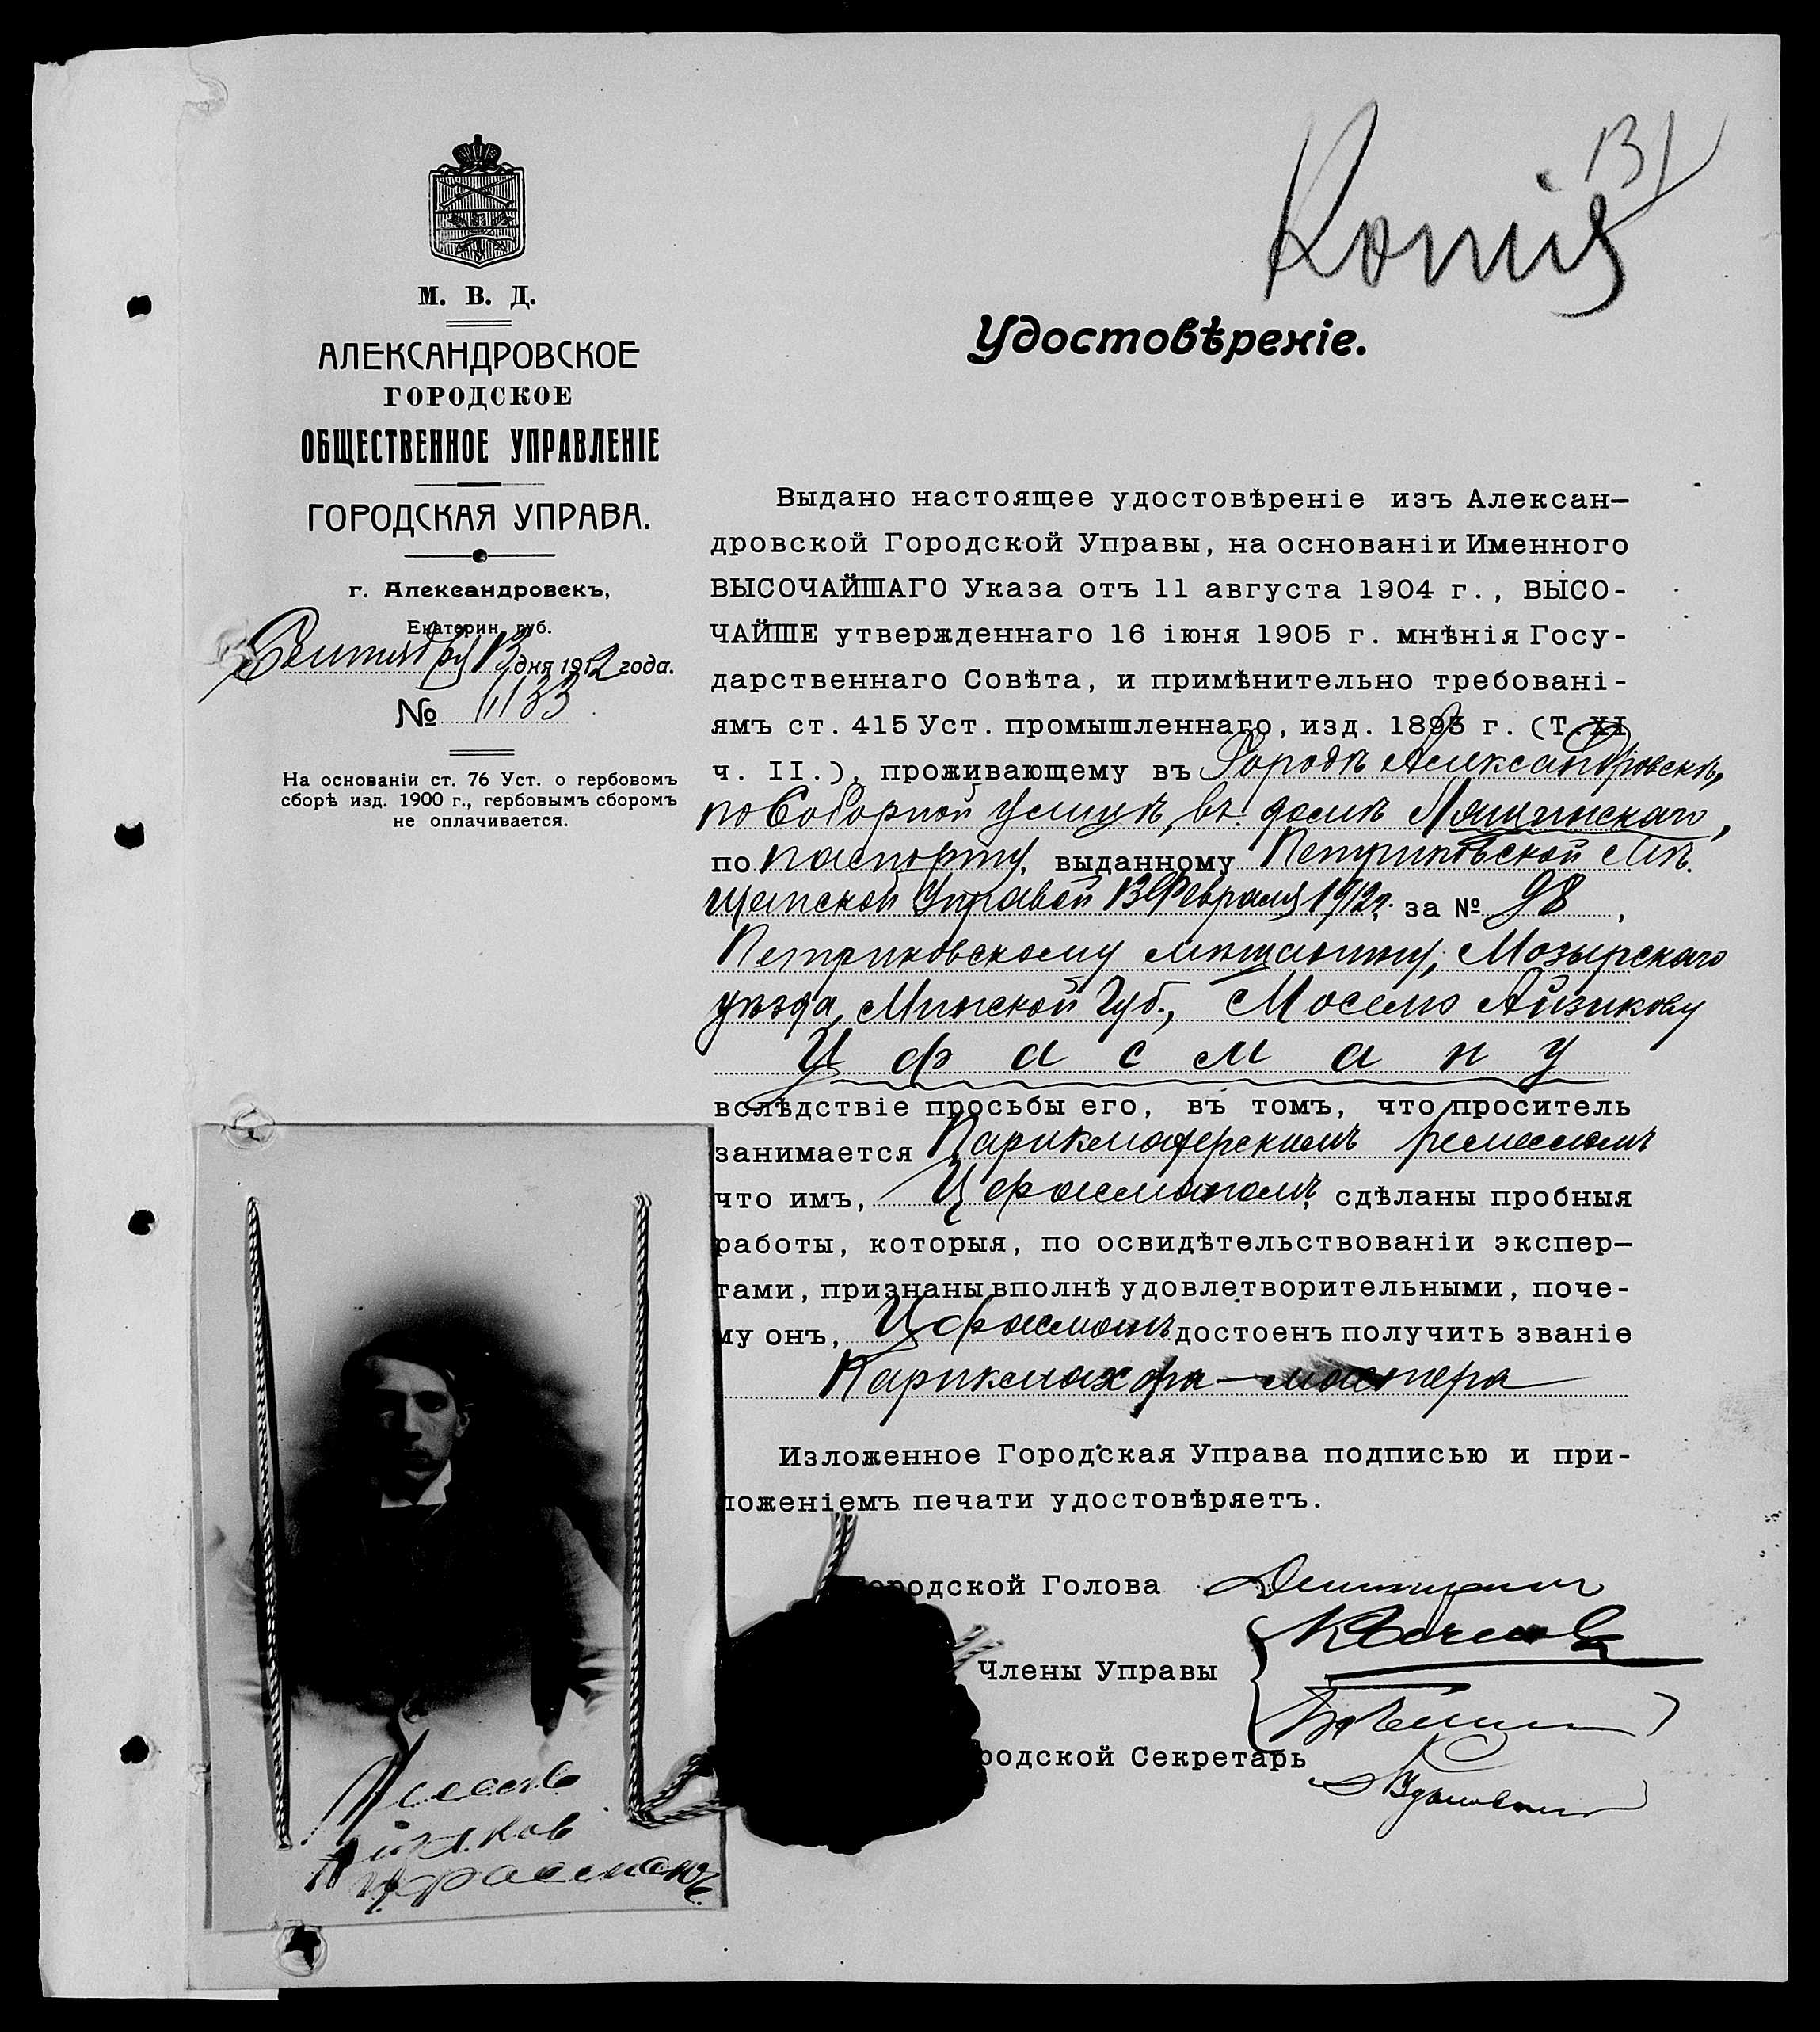 131
Копія
М. В. Д.
АЛЕКСАНДРОВСКОЕ
ГОРОДСКОЕ
ОБЩЕСТВЕННОЕ УПРАВЛЕНІЕ
ГОРОДСКАЯ УПРАВА.
г. Александровскъ,
Екатерин. губ.
Сентября 13 дня 1912 года.
№ 1133
На основаніи ст. 76 Уст. о гербовомъ
сборѣ изд. 1900 г., гербовымъ сборомъ
не оплачивается.
Удостовѣреніе.
Выдано настоящее удостовѣреніе изъ Алексан-
дровской Городской Управы, на основаніи Именного
ВЫСОЧАЙШАГО Указа отъ 11 августа 1904 г., ВЫСО-
ЧАЙШЕ утвержденнаго 16 іюня 1905 г. мнѣнія Госу-
дарственнаго Совѣта, и примѣнительно требовані-
ямъ ст. 415 Уст. промышленнаго, изд. 1893 г. (Т. XI
ч. II.), проживающему въ Городѣ Александровскѣ,
по Соборной улицѣ, въ домѣ
по паспорту, выданному Петриковской Мѣ-
щанской Управой 13 Февраля 1912 г. за № 98,
Петриковскому мѣщанину, Мозырскаго
уѣзда, Минской Губ., Моселю Айзикову
Цфасману
вслѣдствіе просьбы его, въ томъ, что проситель
занимается Парикмахерскимъ ремесломъ
что имъ, Цфасманомъ, сдѣланы пробныя
работы, которыя, по освидѣтельствованіи экспер-
тами, признаны вполнѣ удовлетворительными, поче-
му онъ, Цфасманъ достоенъ получить званіе
Парикмахера-мастера
Изложенное Городская Управа подписью и при-
ложеніемъ печати удостовѣряетъ.
Городской Голова
Члены Управы
ородской Секретарь
Цфасманъ